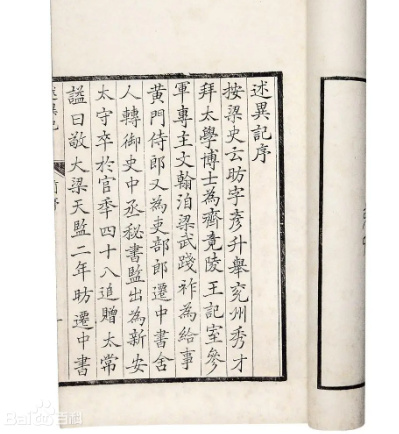 述異記序
按梁史云昉字彥升舉兖州秀才
拜太學博士為齊竟陵王記室參
軍專主文翰洎梁武踐祚為給事
黄門侍郎又為吏部郎遷中書舍
人轉御史中丞秘書監出為新安
太守卒於官季四十八追贈太常
謚曰敬大梁天監二年昉遷中書
Bai百科